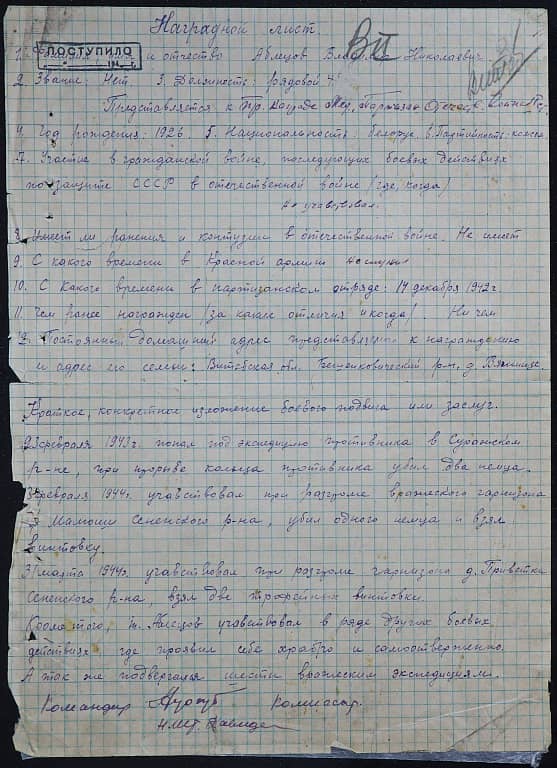 Наградной лист
ПОСТУПИЛО
1. и отчество Аблецов Николаевич
2. Звание: Нет. 3. Должность: рядовой
Представляется к Пр. награде Мед. Партизан Отечес.
4. Год рождения: 1926. 5. Национальность: белорус, 6. Партийность: комсом
7. Участие в гражданской войне, последующих боевых действиях
по защите СССР в отечественной войне /где, когда/
Не участвовал.
8. Имеет ли ранения и контузии в отечественной войне. Не имеет
9. С какого времени в Красной армии
10. С какого времени в партизанском отряде: 14 декабря 1942 г.
11. Чем ранее награжден /за какие отличия и когда/. Ни чем
12. Постоянный домашний адрес представляемого к награждению
и адрес его семьи: Витебская обл. Бешенковический р-н, д.
Краткое, конкретное изложение боевого подвига или заслуг.
февраля 1943 г. попал под экспедицию противника в Суражском
р-не, при прорыве кольца противника убил два немца.
февраля 1944 г. учавствовал при разгроме вражеского гарнизона
Сененского р-на, убил одного немца и взял
винтовку.
31 марта 1944 г. учавствовал при разгроме гарнизона д.
Сененского р-на, взял две трофейных винтовки.
Кроме того, т. Аблецов учавствовал в ряде других боевых
действиях где проявил себе храбро и самоотверженно.
А так же подвергался шести вражеским экспедициям.
Командир Комиссар